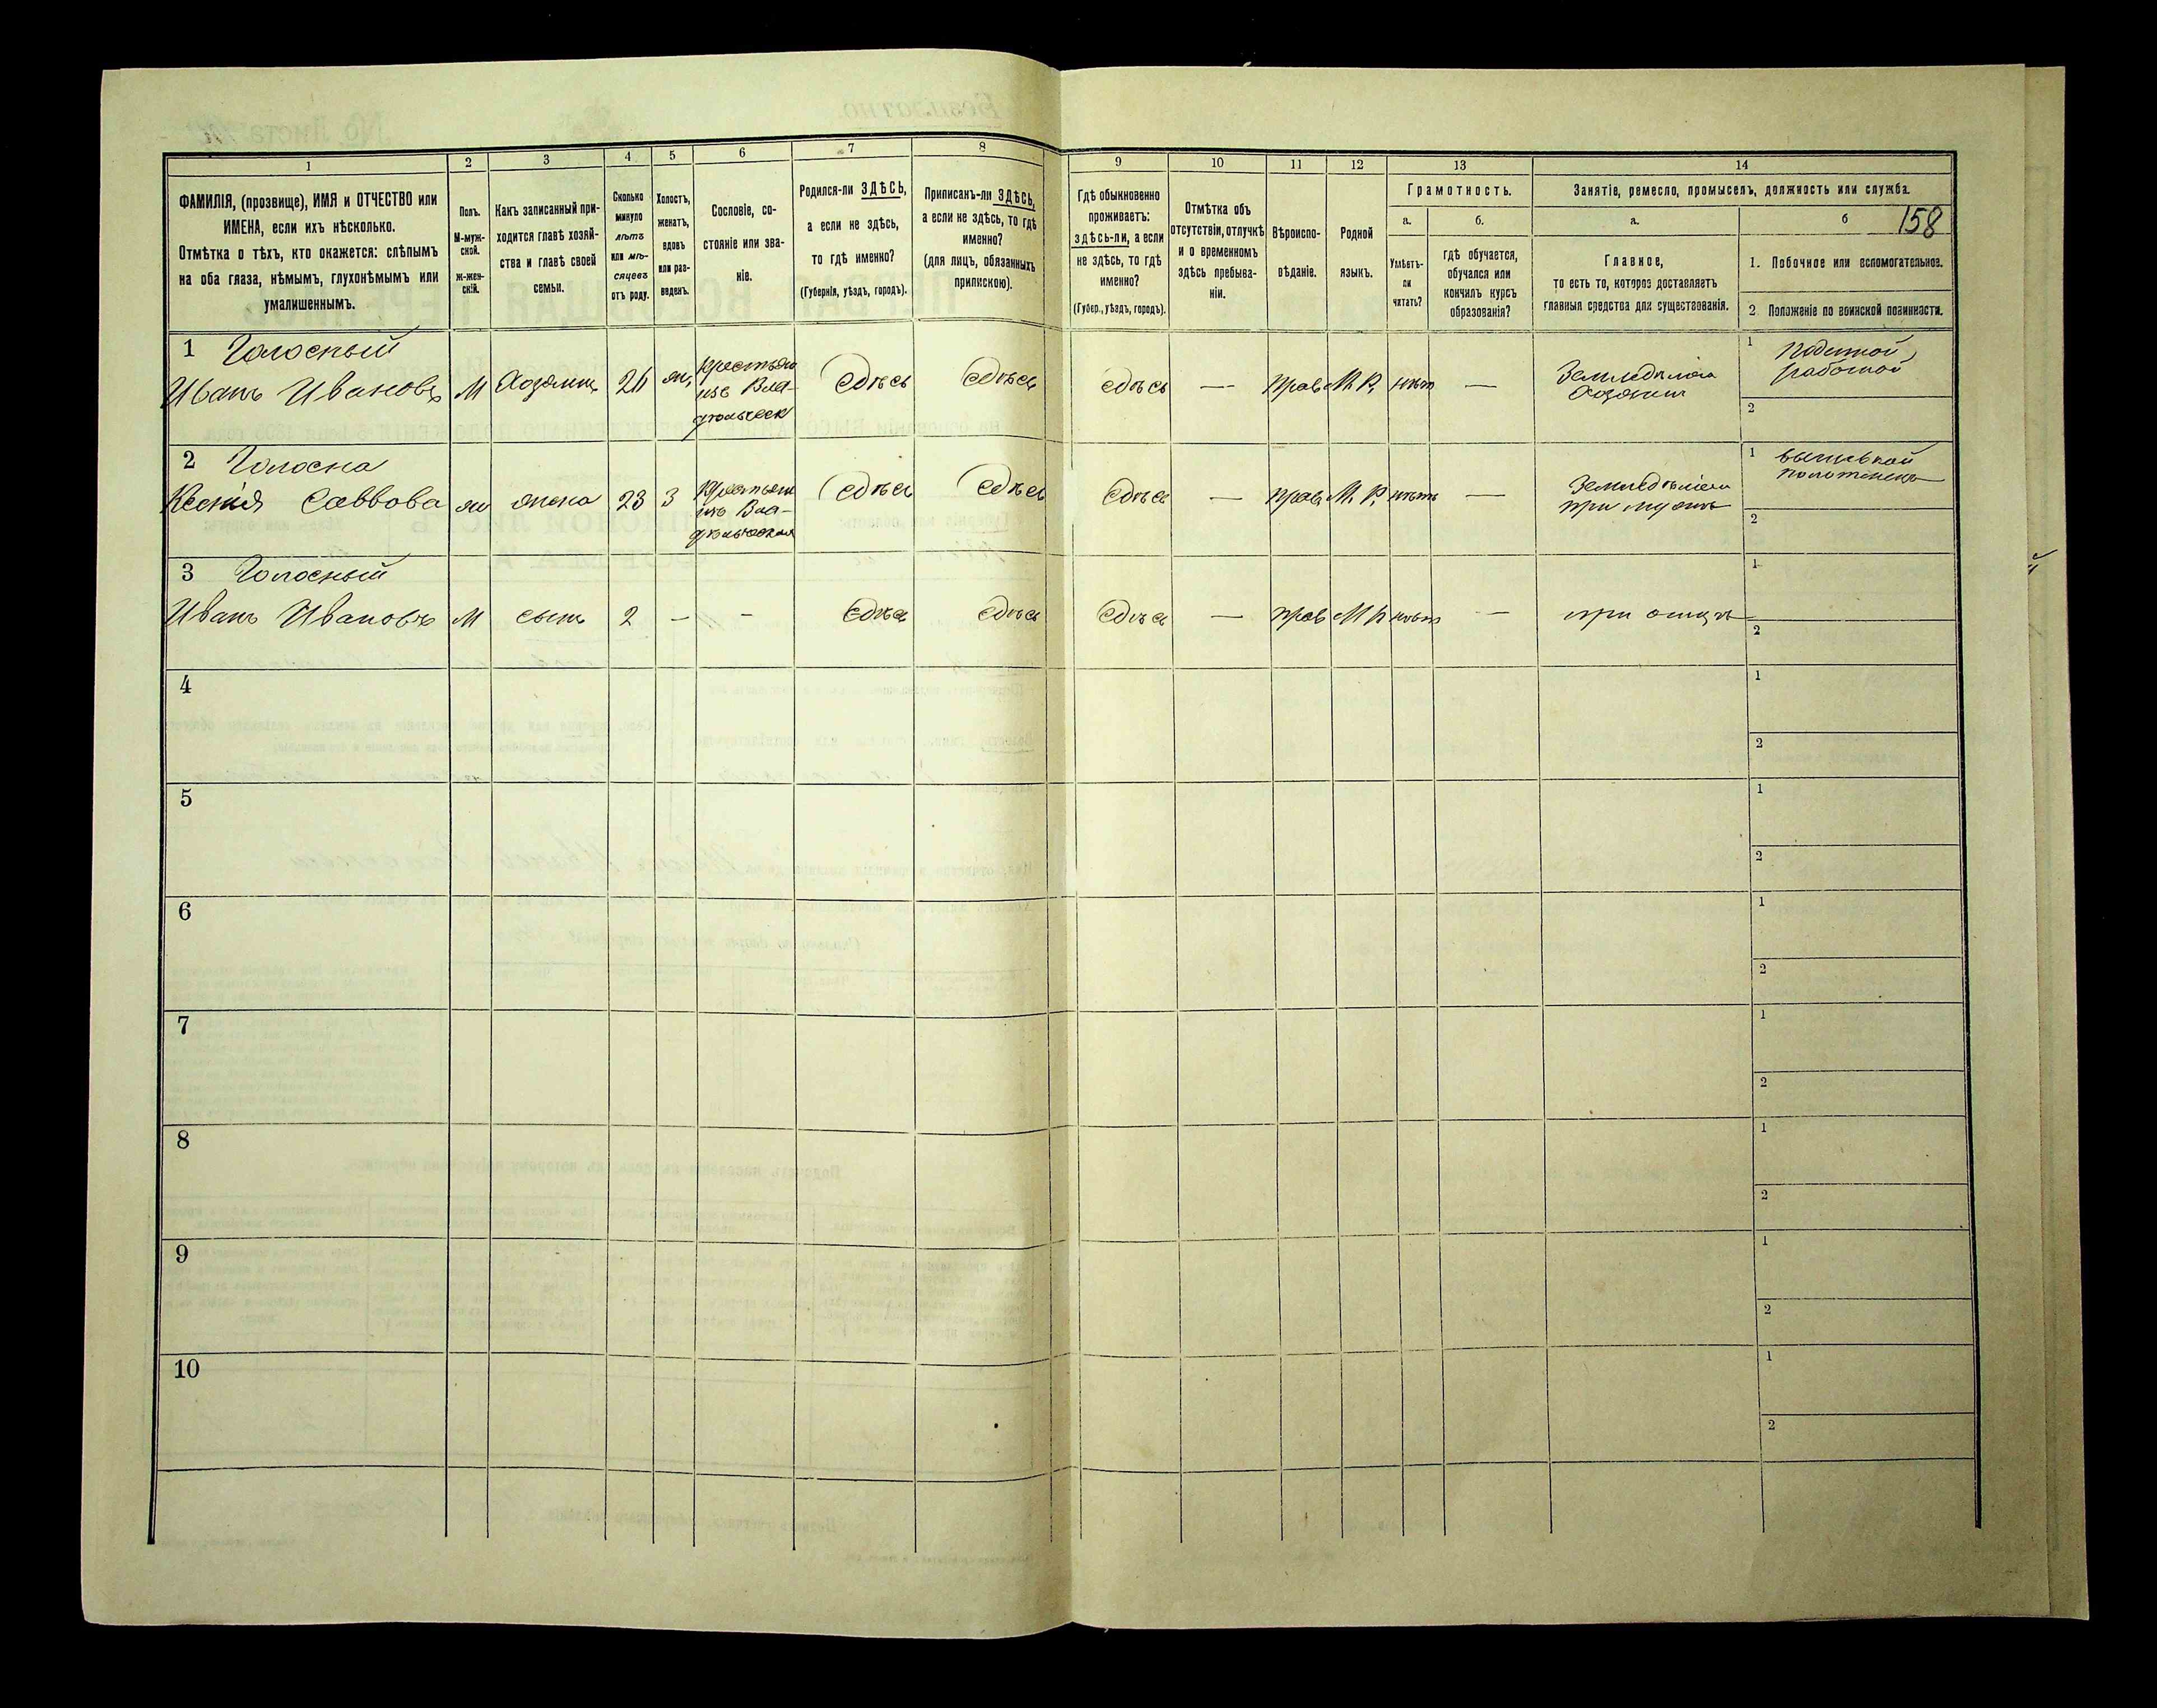 1 2 3 4 5 6 7 8 9 10 11 12 13 14
ФАМИЛІЯ, (прозвище), ИМЯ и ОТЧЕСТВО или
ИМЕНА, если ихъ нѣсколько.
Отмѣтка о тѣхъ, кто окажется: слѣпымъ
на оба глаза, нѣмымъ, глухонѣмымъ или
умалишеннымъ.
Полъ.
М-муж-
ской.
ж-жен-
скій.
Какъ записанный при-
ходится главѣ хозяй-
ства и главѣ своей
семьи.
Сколько
минуло
лѣтъ
или мѣ-
сяцевъ
отъ роду.
Холостъ,
женатъ,
вдовъ
или раз-
веденъ.
Сословіе, со-
стояніе или зва-
ніе.
Родился-ли ЗДѢСЬ,
а если не здѣсь,
то гдѣ именно?
(Губернія, уѣздъ, городъ).
Приписанъ-ли ЗДѢСЬ,
а если не здѣсь, то гдѣ
именно?
(для лицъ, обязанныхъ
припискою).
Гдѣ обыкновенно
проживаетъ:
здѣсь-ли, а если
не здѣсь, то гдѣ
именно?
(Губер., уѣздъ, городъ).
Отмѣтка объ
отсутствіи, отлучкѣ
и о временномъ
здѣсь пребыва-
ніи.
Вѣроиспо-
вѣданіе.
Родной
языкъ.
Грамотность.
а. б.
Умѣетъ-
ли
читать?
гдѣ обучается,
обучался или
кончилъ курсъ
образованія?
Занятіе, ремесло, промыселъ, должность или служба.
а. б 158
Главное,
то есть то, которое доставляетъ
главныя средства для существованія.
1. Побочное или вспомогательное.
2. Положеніе по воинской повинности.
1 Голосный
Иванъ Ивановъ М Хозяинъ 24 ж,
изъ Вла-
Здѣсь Здѣсь Здѣсь — Прав М Р, нѣтъ —
Земледѣліе
Хозяинъ
1 Поденной
работой
2
2 Голосна
Ксенія Саввова ж жена 23 З
изъ Вла-
Здѣсь Здѣсь Здѣсь — Прав М. Р, нѣтъ —
Земледѣліе
при мужѣ
1
2
3 Голосный
Иванъ Ивановъ М сынъ 2 — — Здѣсь Здѣсь Здѣсь — Прав М Р нѣтъ — при отцѣ
1
2
4
1
2
5
1
2
6
1
2
7
1
2
8
1
2
9
1
2
10
1
2